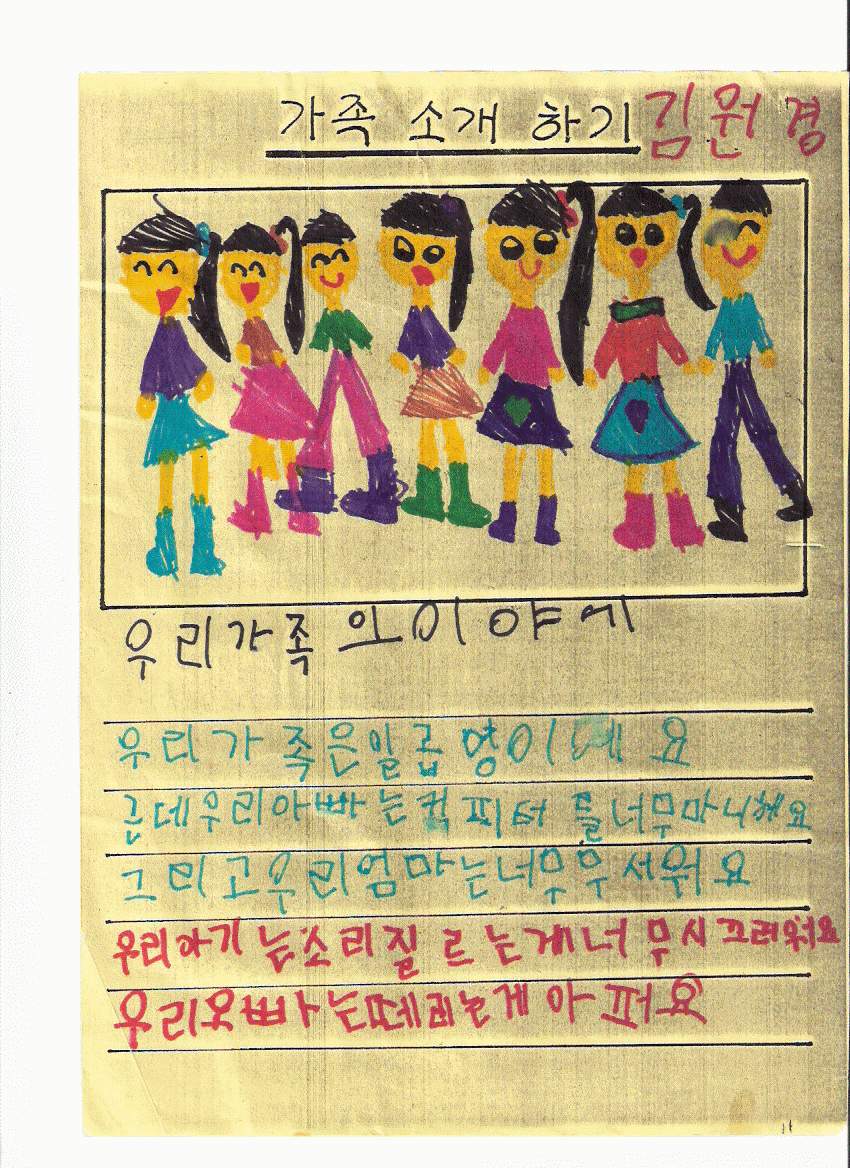 가족 소개 하기 김원경
우리가족 의이야에
우리가족은일곱명이에요
근데우리아빠는컴퓨터를너무마니해요
그리고우리엄마는너무무서워요
우리아기는소리질르는게너무시끄러워요
우리오빠는때리는게아퍼요